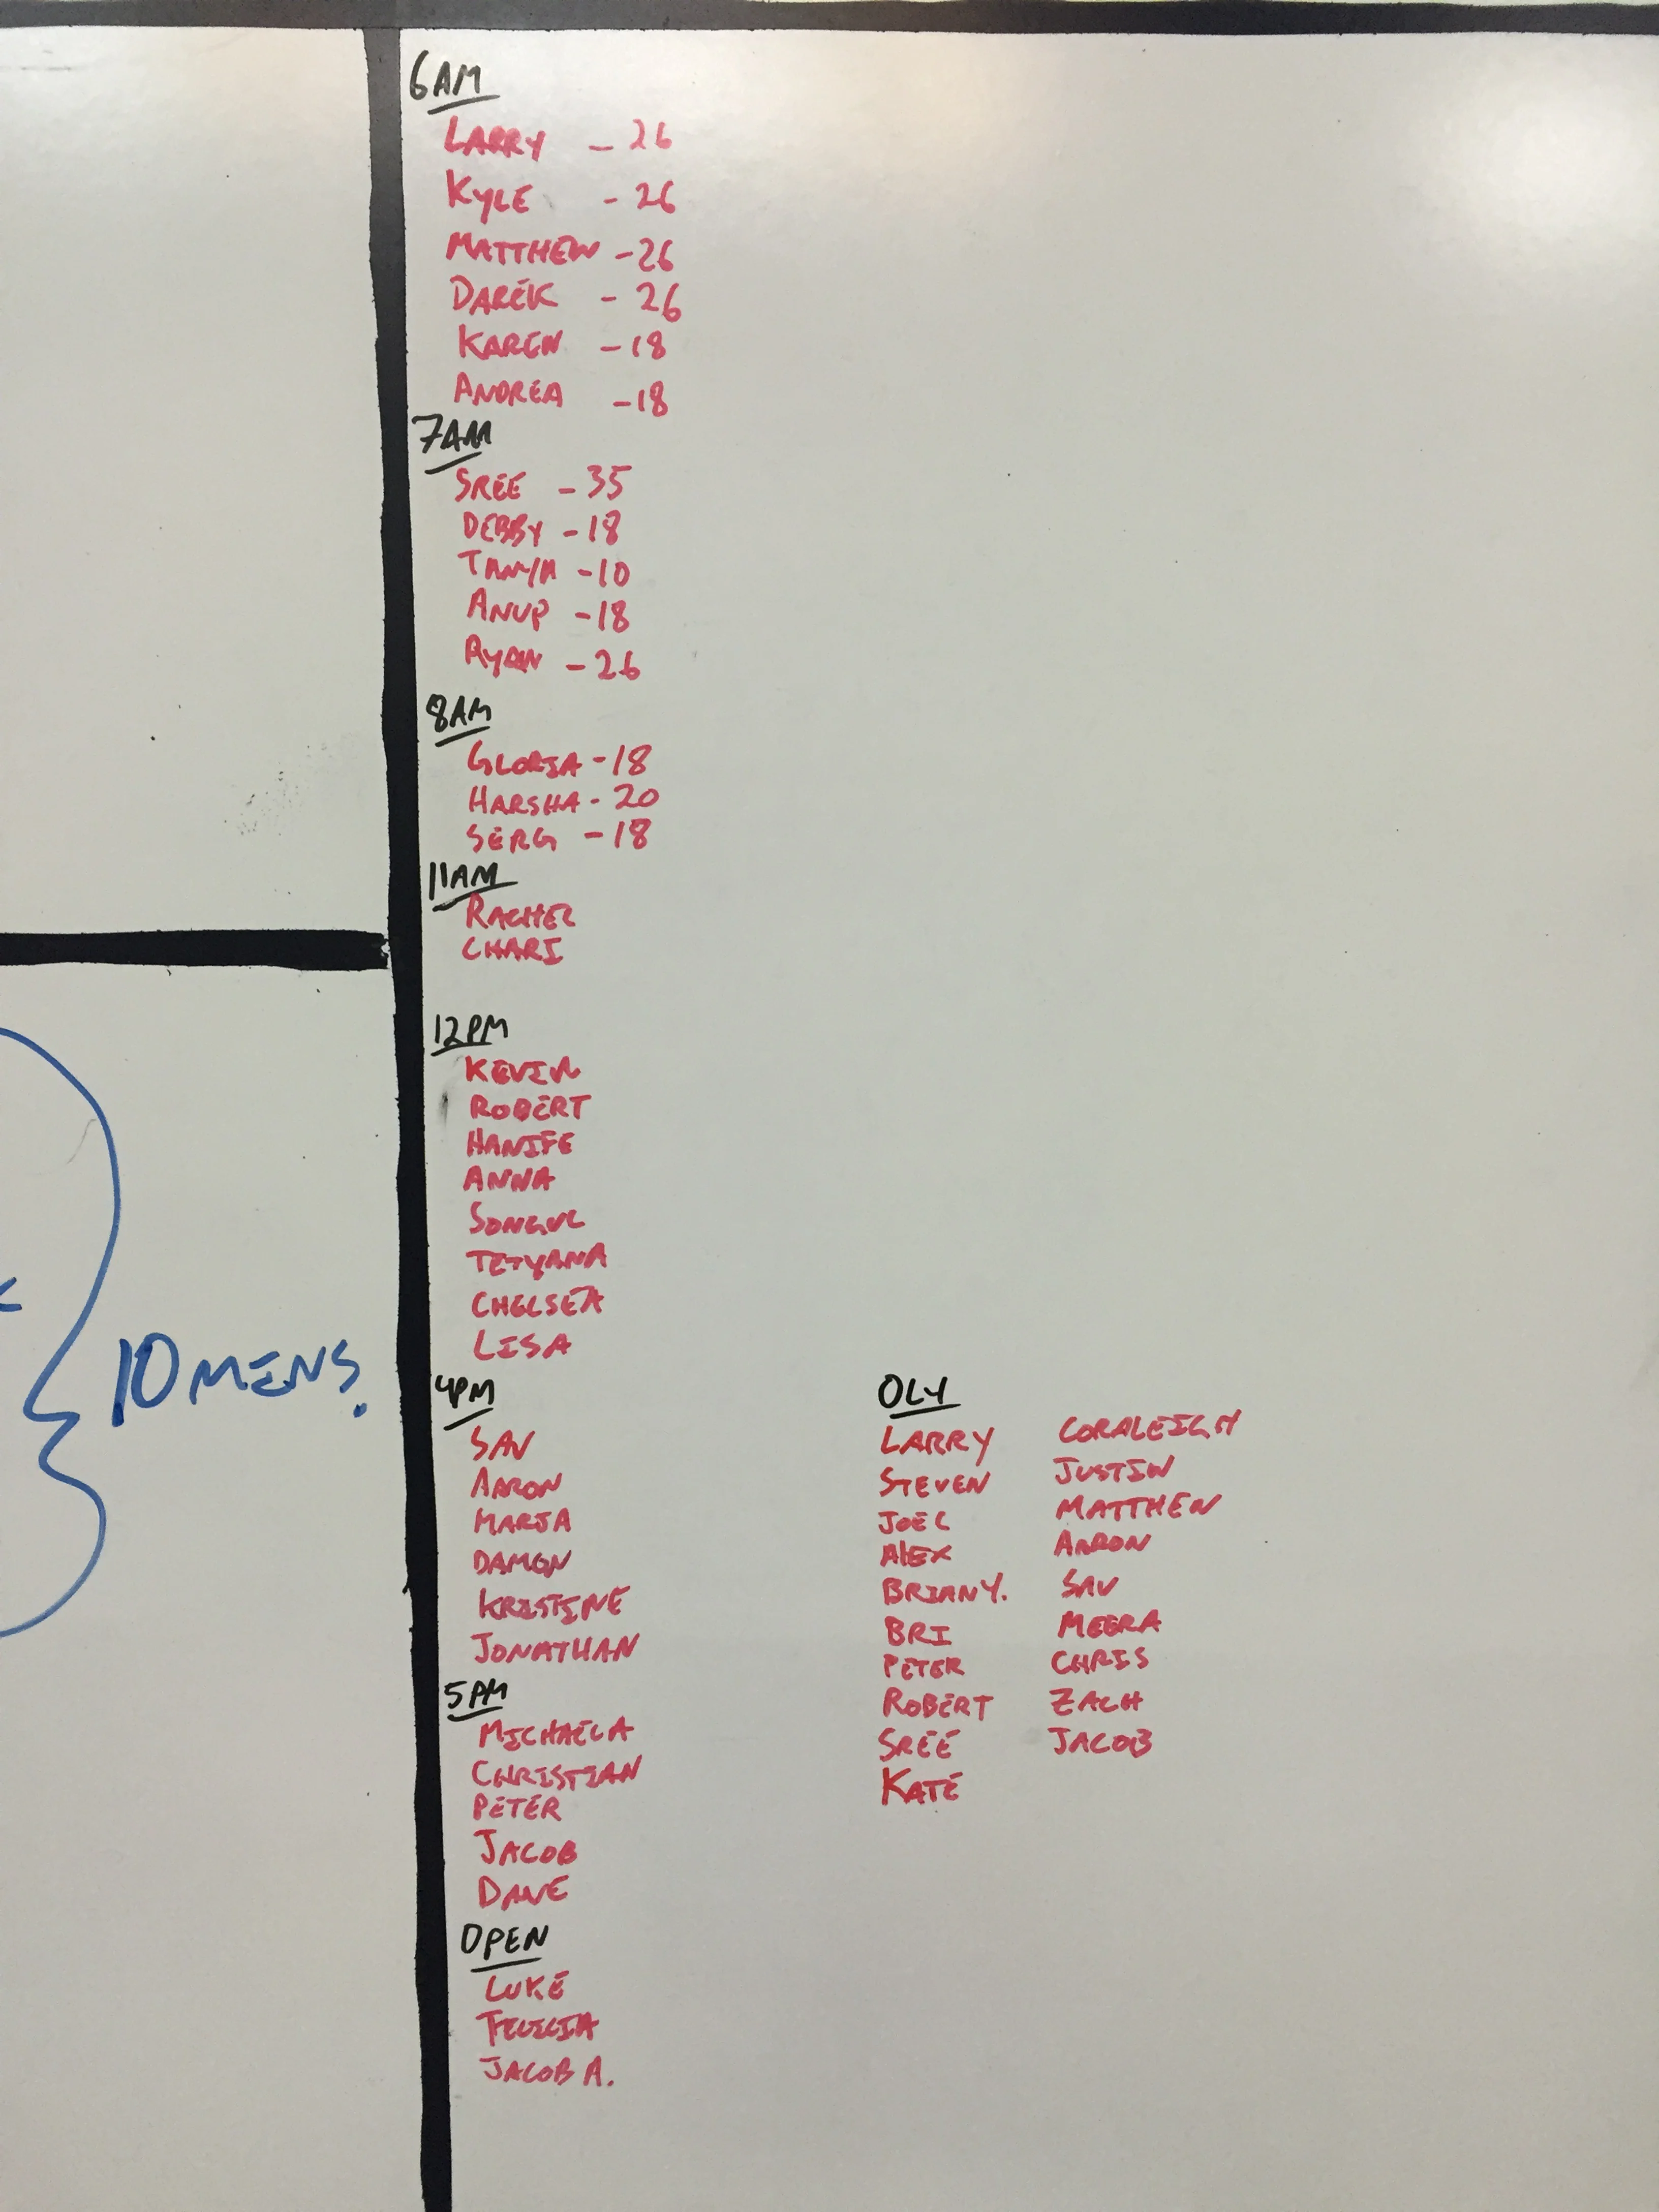 6AM
LARRY - 26
KYLE - 26
MATTHEW - 26
DAREK - 26
KAREN - 18
ANDREA - 18
7AM
SREE - 35
DEBBY - 18
TANYA - 10
ANUP - 18
RYAN - 26
8AM
GLORIA - 18
HARSHA - 20
SERG - 18
11AM
RACHEL
CHARI
12PM
KEVIN
ROBERT
HANIFE
ANNA
SONGUL
TETYANA
CHELSEA
LISA
10 MINS.
4PM
SAV
AARON
MARIA
DAMON
KRISTINE
JONATHAN
5PM
MICHAELA
CHRISTIAN
PETER
JACOB
DANE
OPEN
LUKE
FELICIA
JACOB A.
OLY
LARRY
STEVEN
JOEL
ALEX
BRIAN Y.
BRI
PETER
ROBERT
SREE
KATE
CORALEIGH
JUSTIN
MATTHEW
AARON
SAV
MEERA
CHRIS
ZACH
JACOB